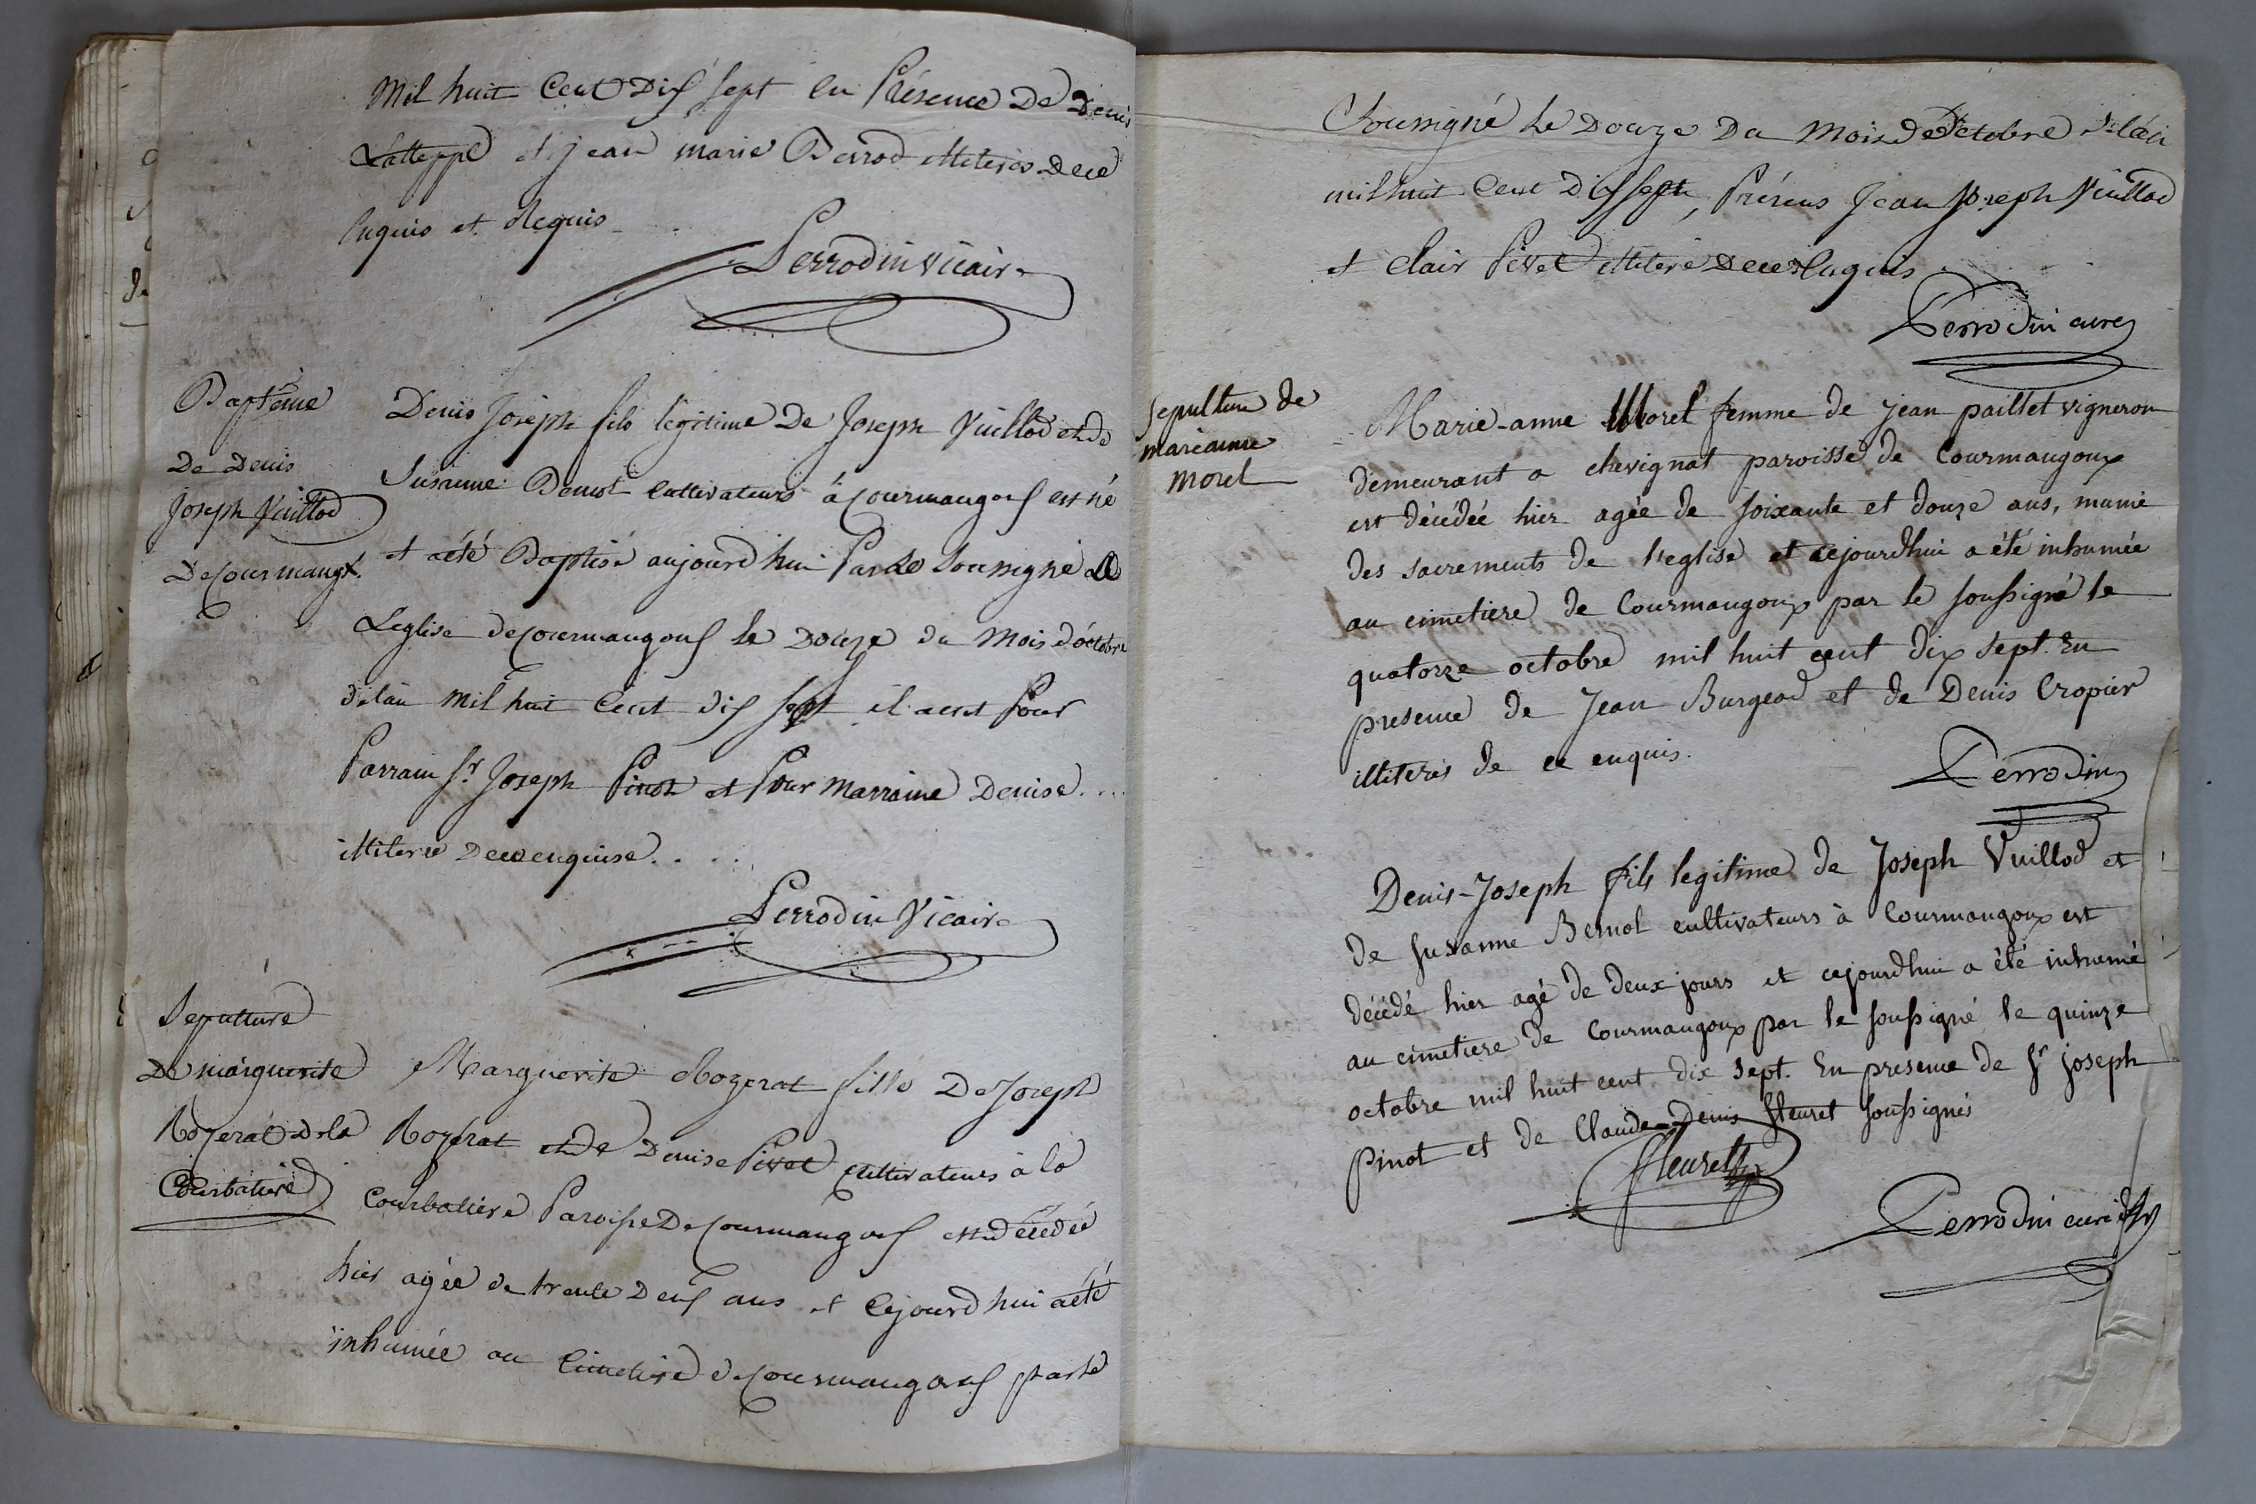 Mil huit Cent Dix sept en Présence De Denis
et jean marie illiterés Dece
Enquis et Requis
Perrodin Vicaire
Baptême
De Denis
Joseph Vuillod
De Courmangx.
Denis Joseph fils légitime De Joseph Vuillod et de
Susanne cultivateurs à Courmangoux est né
et a été Baptisé aujourd'hui Par Le Soussigné
L'eglise de Courmangoux le Douze du Mois d'octobre
de l'an Mil huit Cent dix sept il a eut Pour
Parrain Sr Joseph Pinot et Pour Marraine Denise....
illiterée De ce enquise....
Perrodin Vicaire
Sepulture
De Marguerite
Rozerat de la
Courbatiere
Marguerite Rozerat fille De Joseph
Rozerat et de Denise Pivet cultivateurs à la
Courbatiere Paroisse De Courmangoux est décédée
hier agée de trente Deux ans et Cejourd'hui a été
inhumée au Cimetiere de Courmangoux par le
Soussigné Le Douze Du Mois de D'octobre de l'an
mil huit Cent Dix sept, Présens Jean Joseph Vuillod
et Clair Pivet illiteré De ce Enquis
Perrodin curé
sepulture de
marianne
morel
Marie-anne Morel femme de jean paillet vigneron
demeurant a chevignat paroisse de Courmangoux
est décédée hier agée de soixante et douze ans, munie
des sacrements de l'eglise et cejourdhui a été inhumée
au cimetiere de Courmangoux par le soussigné le
quatorze octobre mil huit cent dix sept. En
presence de Jean Burgeod et de Denis Cropier
illiterés de ce enquis.
Perrodin
Denis-Joseph fils legitime de Joseph Vuillod et
de Susanne Bernol cultivateurs à Courmangoux est
décédé hier agé de deux jours et cejourdhui a été inhumé
au cimetiere de Courmangoux par le soussigné le quinze
octobre mil huit cent dix sept. En presence de Sr joseph
pinot et de Claude-Denis fleuret soussignés
fleuret
Perrodin curé